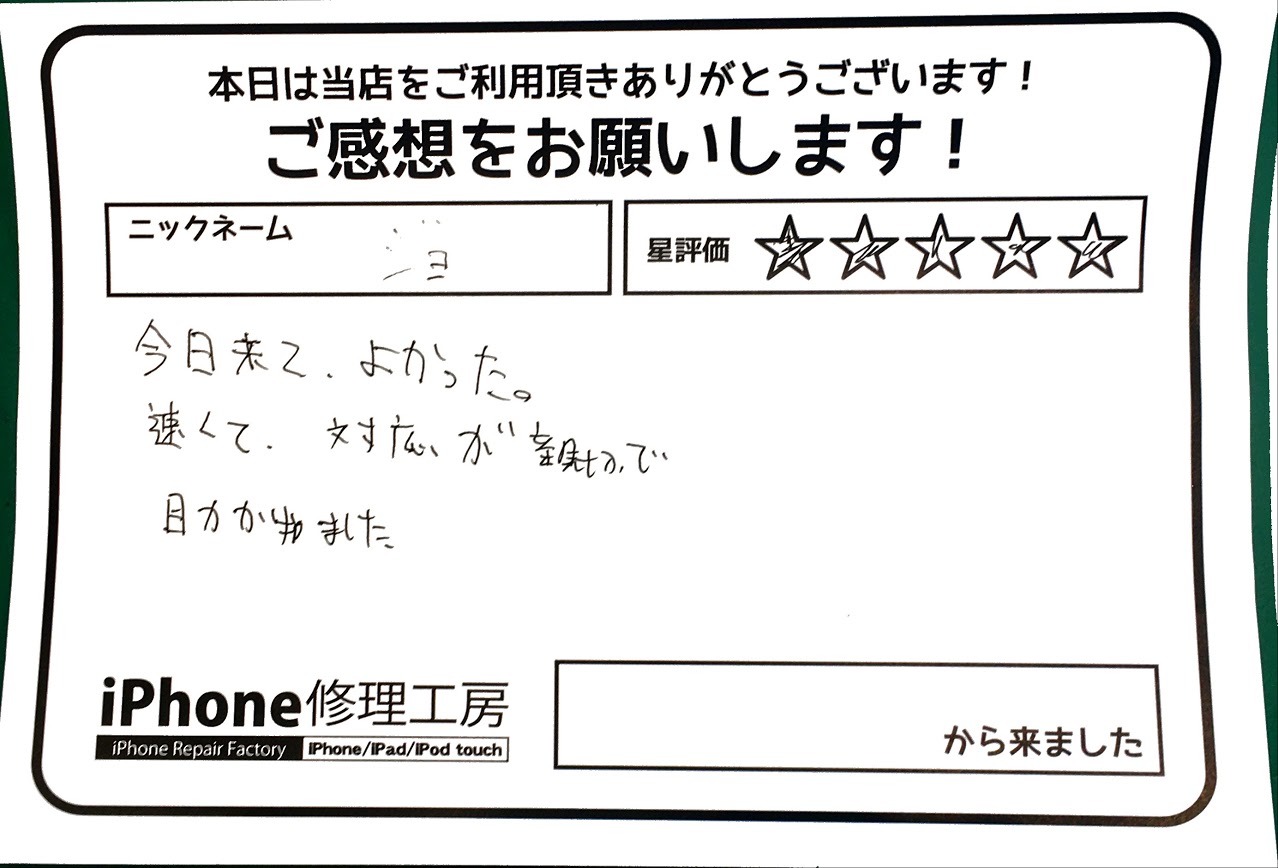 本日は当店をご利用頂きありがとうございます！
ご感想をお願いします！
ニックネーム
星評価
今日来て、よかった。
速くて、対応が親切で
助かりました
iPhone修理工房
iPhone Repair Factory iPhone/iPad/iPod touch
から来ました